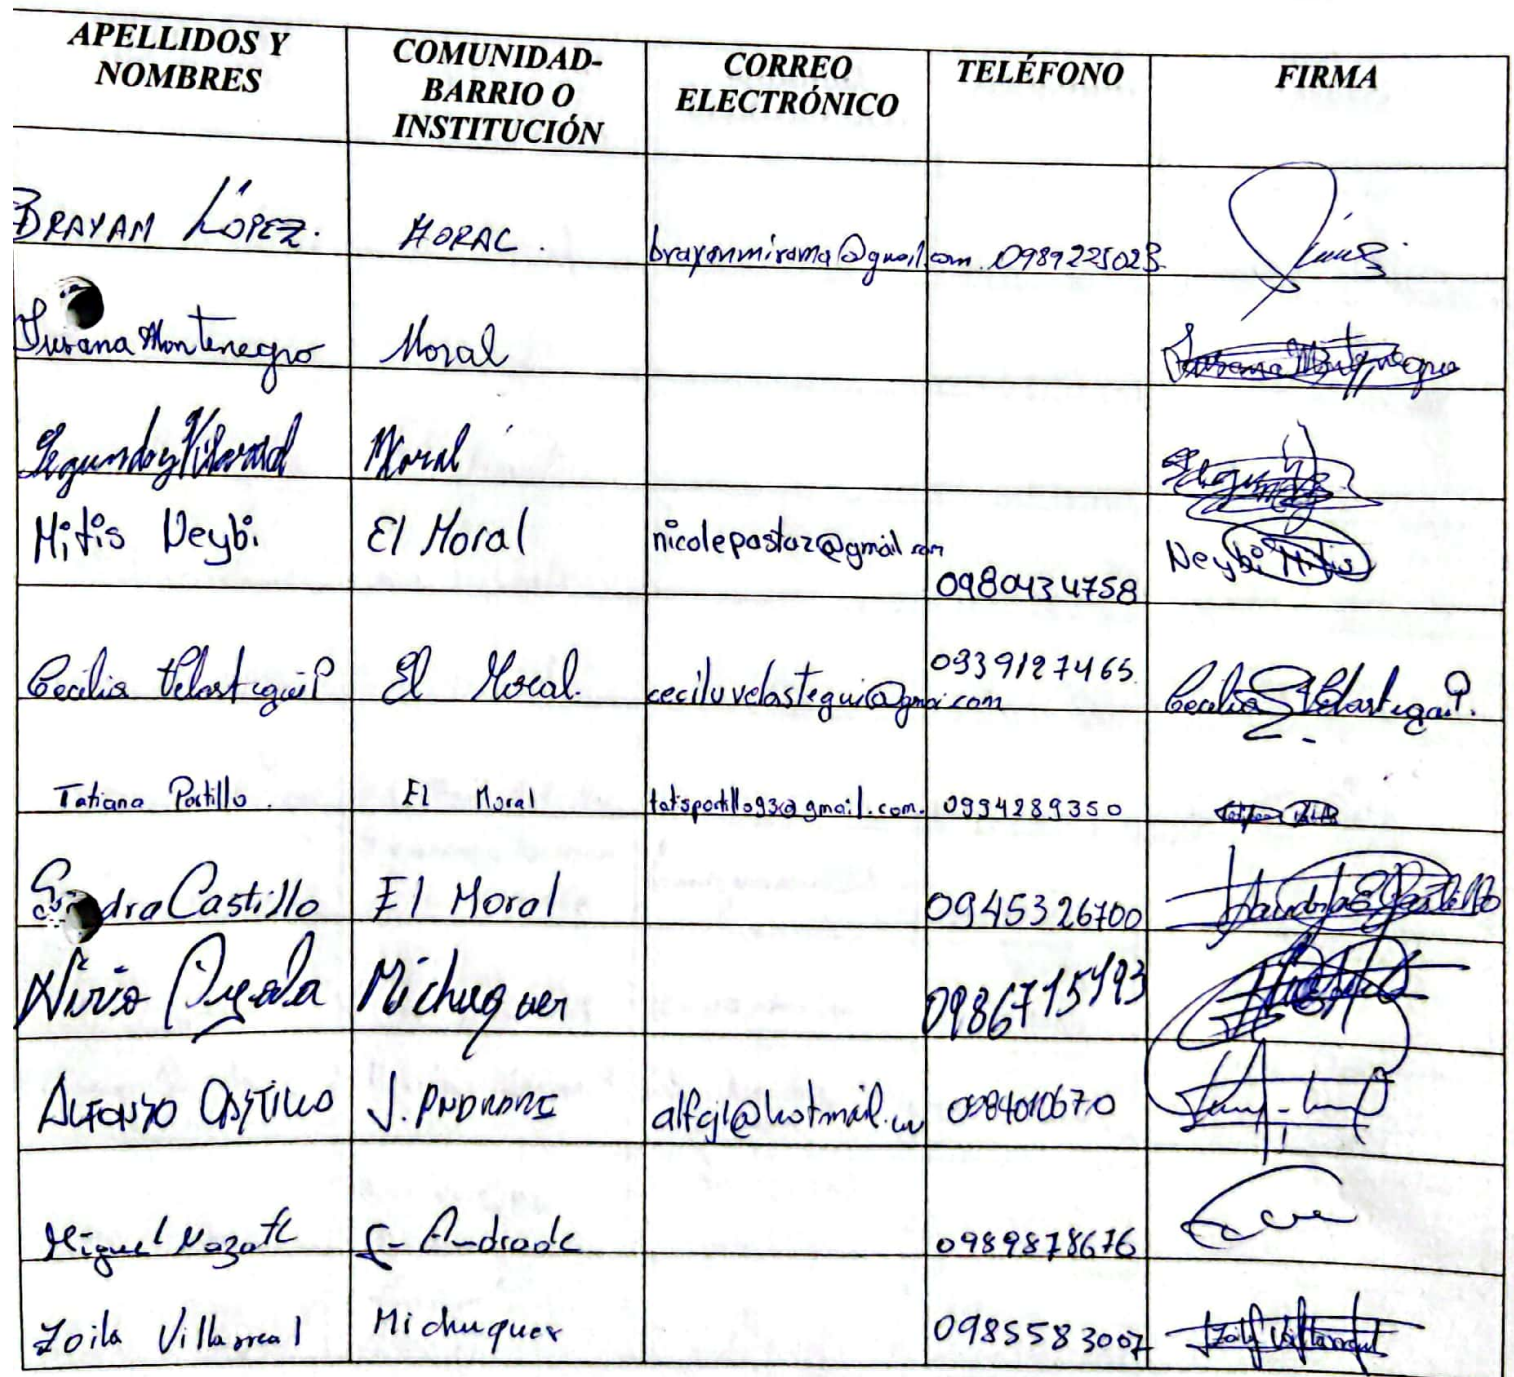 APELLIDOS Y NOMBRES COMUNIDAD-BARRIO O INSTITUCIÓN CORREO ELECTRÓNICO TELÉFONO FIRMA
BRAYAN LÓPEZ. MORAL. brayanmirama@gmail.com. 0989225023
Susana Montenegro Moral Susana Montenegro
Segundo Moral Segundo
Mitis Neybi El Moral nicolepastaz@gmail.com 0980434758 Neybi Mitis
Cecilia Velastegui P El Moral. ceciluvelastegui@gmai.com 0939127465 Cecilia Velastegui P.
Tatiana Portillo. El Moral tatisportillo93@gmail.com. 0994289350
Castillo El Moral 0945326700
Ayala Michuquer 0986715193
ALFONSO CASTILLO J. ANDRADE @hotmail.
Miguel Andrade 0989878676
Zoila Villarreal Michuquer 0985583007 Zoila Villarreal